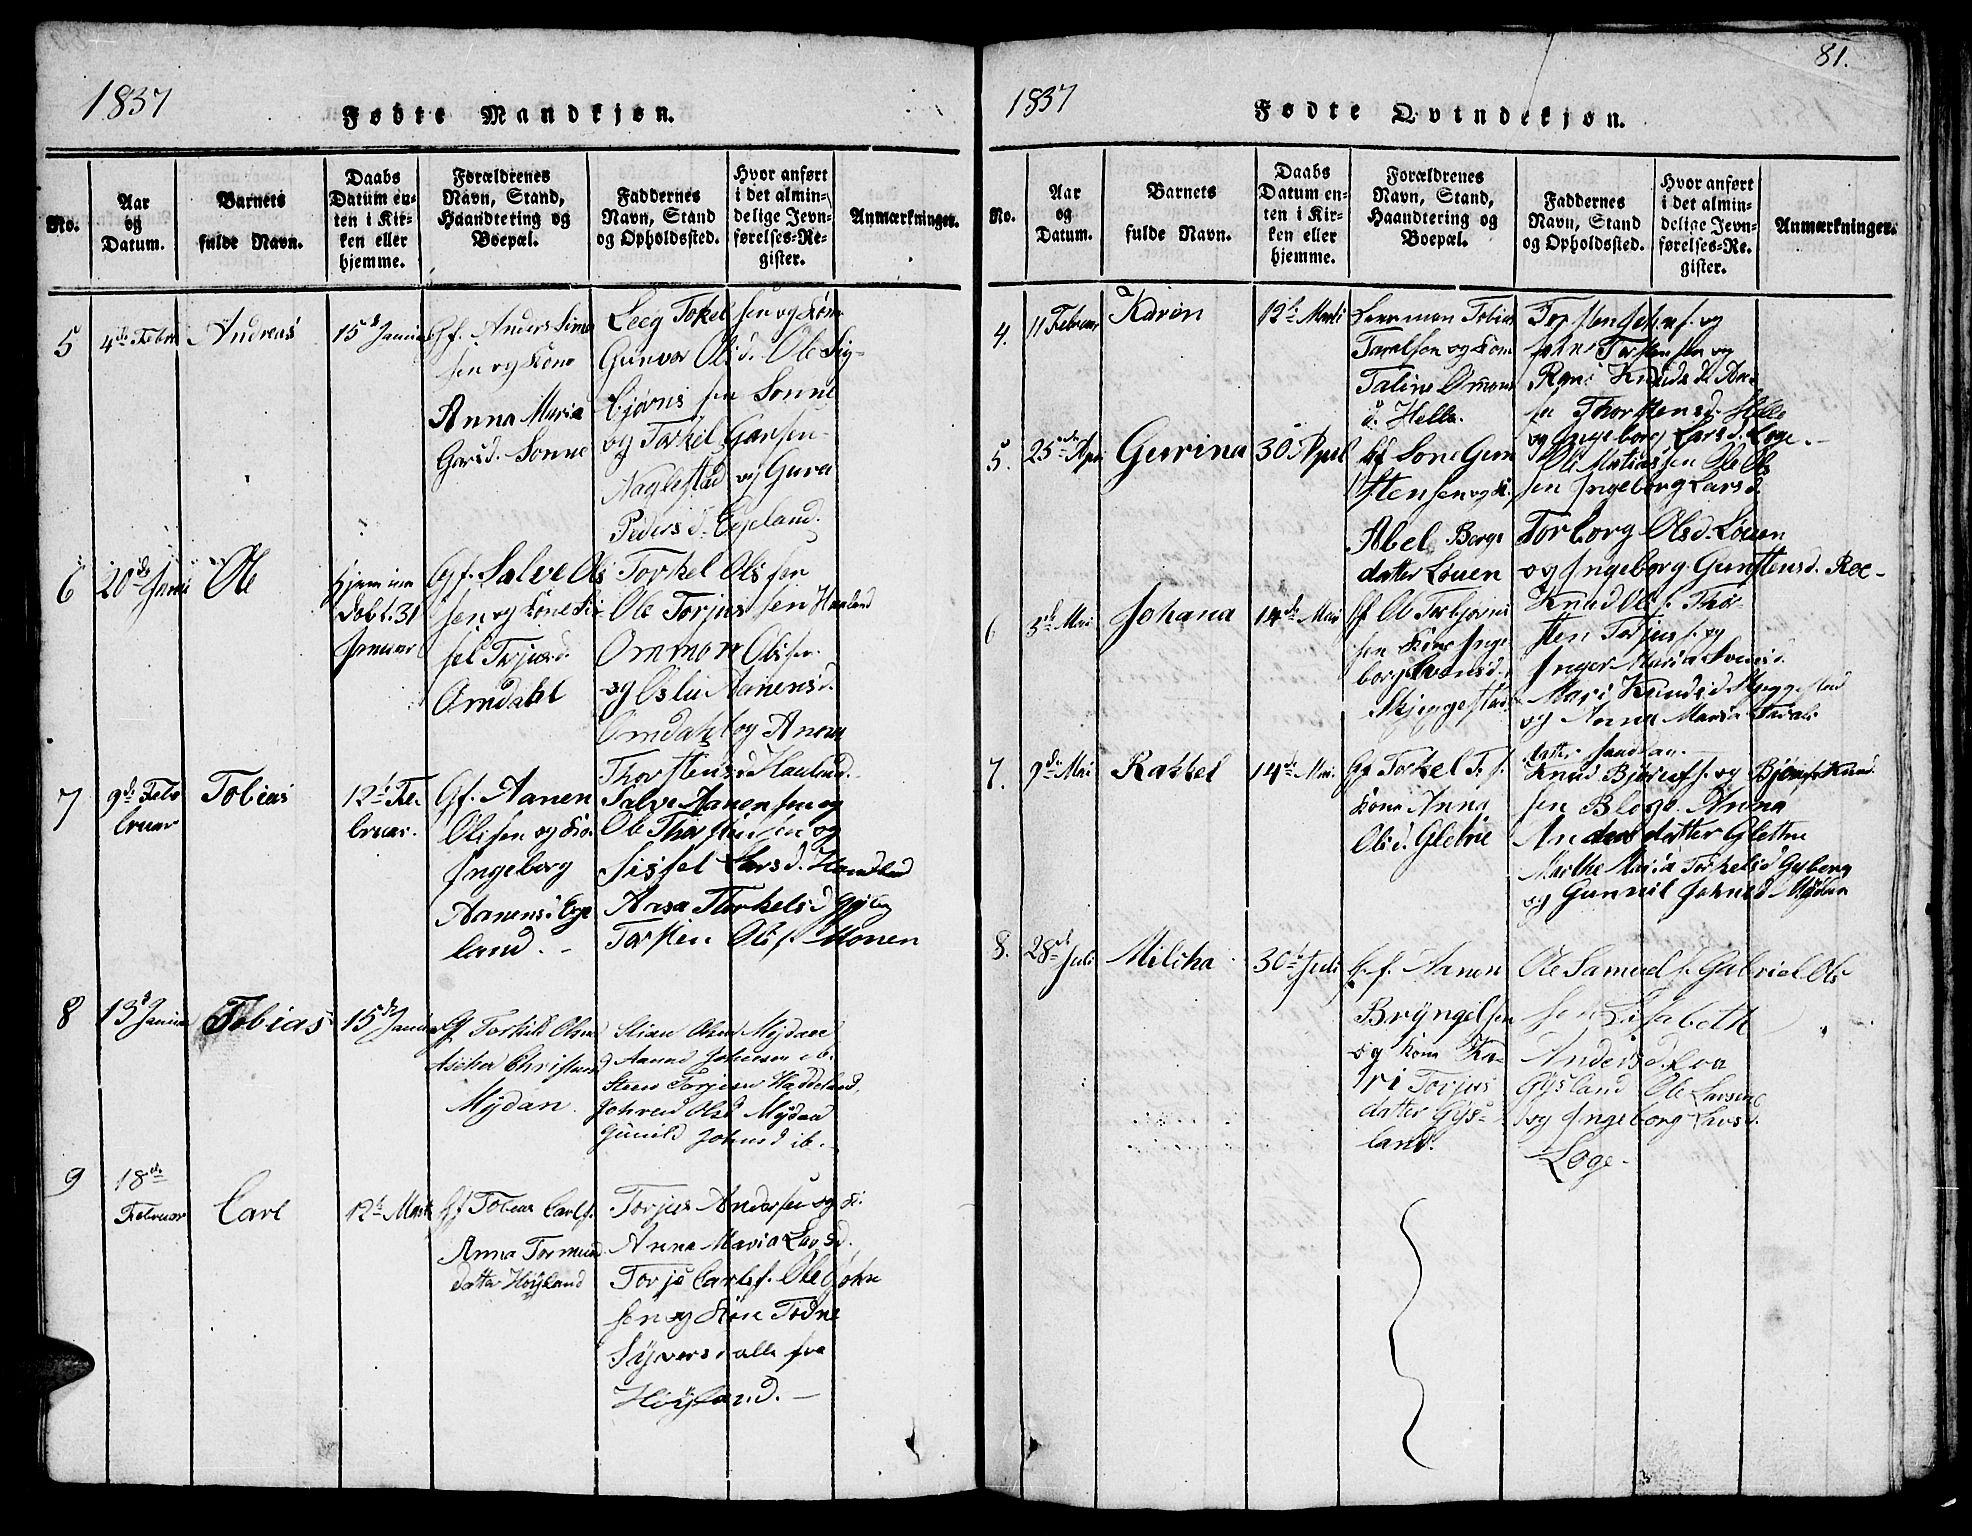 1837
Fødte Mandkjøn.
No.
Aar og Datum.
Barnets fulde Navn.
Daabs Datum enten i Kirken eller hjemme.
Forældrenes Navn, Stand, Haandtering og Boepæl.
Faddernes Navn, Stand og Opholdssted.
Hvor anført i det almindelige Jevnførelses-Register.
Anmærkninger.
5
4de Febr
Andreas
15d Januar
Gf. Anders Simo
sen og Kone
Anna Maria
Garsd. Sonne
Leeg Tokel sen og Kone
Gunvor Olsd. Ole Sig
bjørns sen Sonne
og Torkel Garsen
Naglestad og Gura
Peders d. Egeland.
6
20de Janu
Ole
Hjemme
døbt. 31
Januar
Gf. Salve Ols
sen og Kone Si
sel Torjusd.
Omdahl
Torkel Ols sen
Ole Torjus sen Haaland
Ommon Olssen
og Oslu Aanensd.
Omdahl og Anna
Thorstens d. Haaland.
7
9de Feb
bruar
Tobias
12d Fe
bruar.
Gf. Aanen
Olssen og Ko.
Ingeborg
Aanensd Ege
land. -
Salve Aanensen og
Ole Thorstensen og
Sissel Larsd. Haaland
Aasa Torkelsd Gyberg
Torsten Ols f. Monen
8
13d Januar
Tobias
15d Januar
Gf Torkild Olsen
Mydan
Stian Olsen Mydan
Aanund Johnsen ib.
Steen Torjesen Haddeland,
Johnsen Olsd Mydan
Gunild Johnsd ib.
9
18de
Februar
Carl
12d Marts
Gf Tobias Carls.
Anna Tormund
datter Høyland
Torjus Andersen og K.
Anna Maria Larsd.
Torjs Carls f. Ole John
sen og Kone Todne
Syvers d alle fra
Høyland. -
81.
1837
Fødte Qvindekjøn.
No.
Aar og Datum.
Barnets fulde Navn.
Daabs Datum enten i Kirken eller hjemme.
Forældrenes Navn, Stand, Haandtering og Boepæl.
Faddernes Navn, Stand og Opholdssted.
Hvor anført i det almindelige Jevnførelses-Register.
Anmærkninger.
4.
11 Februar
Karen
12d Marti
Tobias
Taralsen og Kone
Taline Omons
d. Helle.
Torsten Johns f. og
John Torstensen og
Rani Knuds d.
Thorstensd. Helle
og Ingeborg Larsd. Loge. -
5.
25de Apr
Gurina
30 April
Gf Sone Gun
stensen og K.
Abel Bergs
datter Louen
Ole Matiassen Ole Ols
sen Ingeborg Larsd.
Torborg Olsd. Louen
og Ingeborg Gunstensd. Roe -
6
5d Mai
Johana
14de Mai
Gf Ole Torbjorns
sen Kone Inge
borg Svensd.
Skjeggestad
Knud Ols f. Thor
sten Torjus f. og
Inger Maria Svensd.
Mari Knudsd Skjeggestad
og Anna Maria Tarals
datter Sanddan.
7.
9de Mai
Rakkel
14de Mai
Gf Torkel T. f.
Kone Anna
Olsd. Gletne
Knud Bjornf. og Bjorn Knud
sen Blego. Anna
Anders datter Gletne
Marthe Maria Torkelsd Gyberg
og Gunnil Johnsd Mydan
8.
28d Juli
Milcha
30d Juli
G. f. Aanen
Bryngelsen
og Kone Ka
ri Torjus
datter Gys
land.
Ole Samuel f. Gabriel Ols
sen Lisabeth
Anders d. Loa
Gysland Ole Larsen
og Ingeborg Larsd.
Loge -